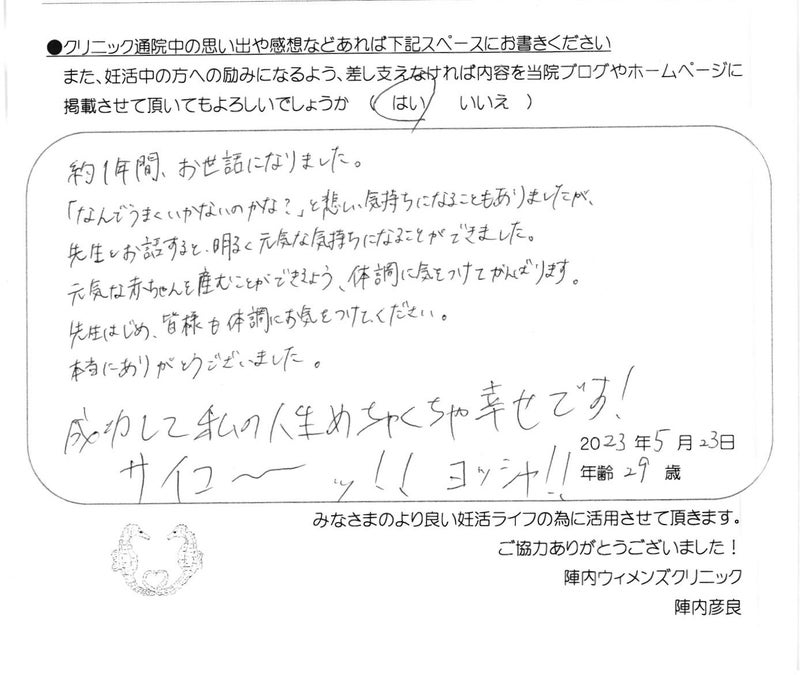 ●クリニック通院中の思い出や感想などあれば下記スペースにお書きください
また、妊活中の方への励みになるよう、差し支えなければ内容を当院ブログやホームページに
掲載させて頂いてもよろしいでしょうか （ はい いいえ ）
約1年間、お世話になりました。
「なんでうまくいかないのかな？」と悲しい気持ちになることもありましたが、
先生とお話すると、明るく元気な気持ちになることができました。
元気な赤ちゃんを産むことができるよう、体調に気をつけてがんばります。
先生はじめ、皆様も体調にお気をつけてください。
本当にありがとうございました。
成功して私の人生めちゃくちゃ幸せです！
サイコーーッ！！ ヨッシャ！！
2023年5月23日
年齢 29 歳
みなさまのより良い妊活ライフの為に活用させて頂きます。
ご協力ありがとうございました！
陣内ウィメンズクリニック
陣内彦良